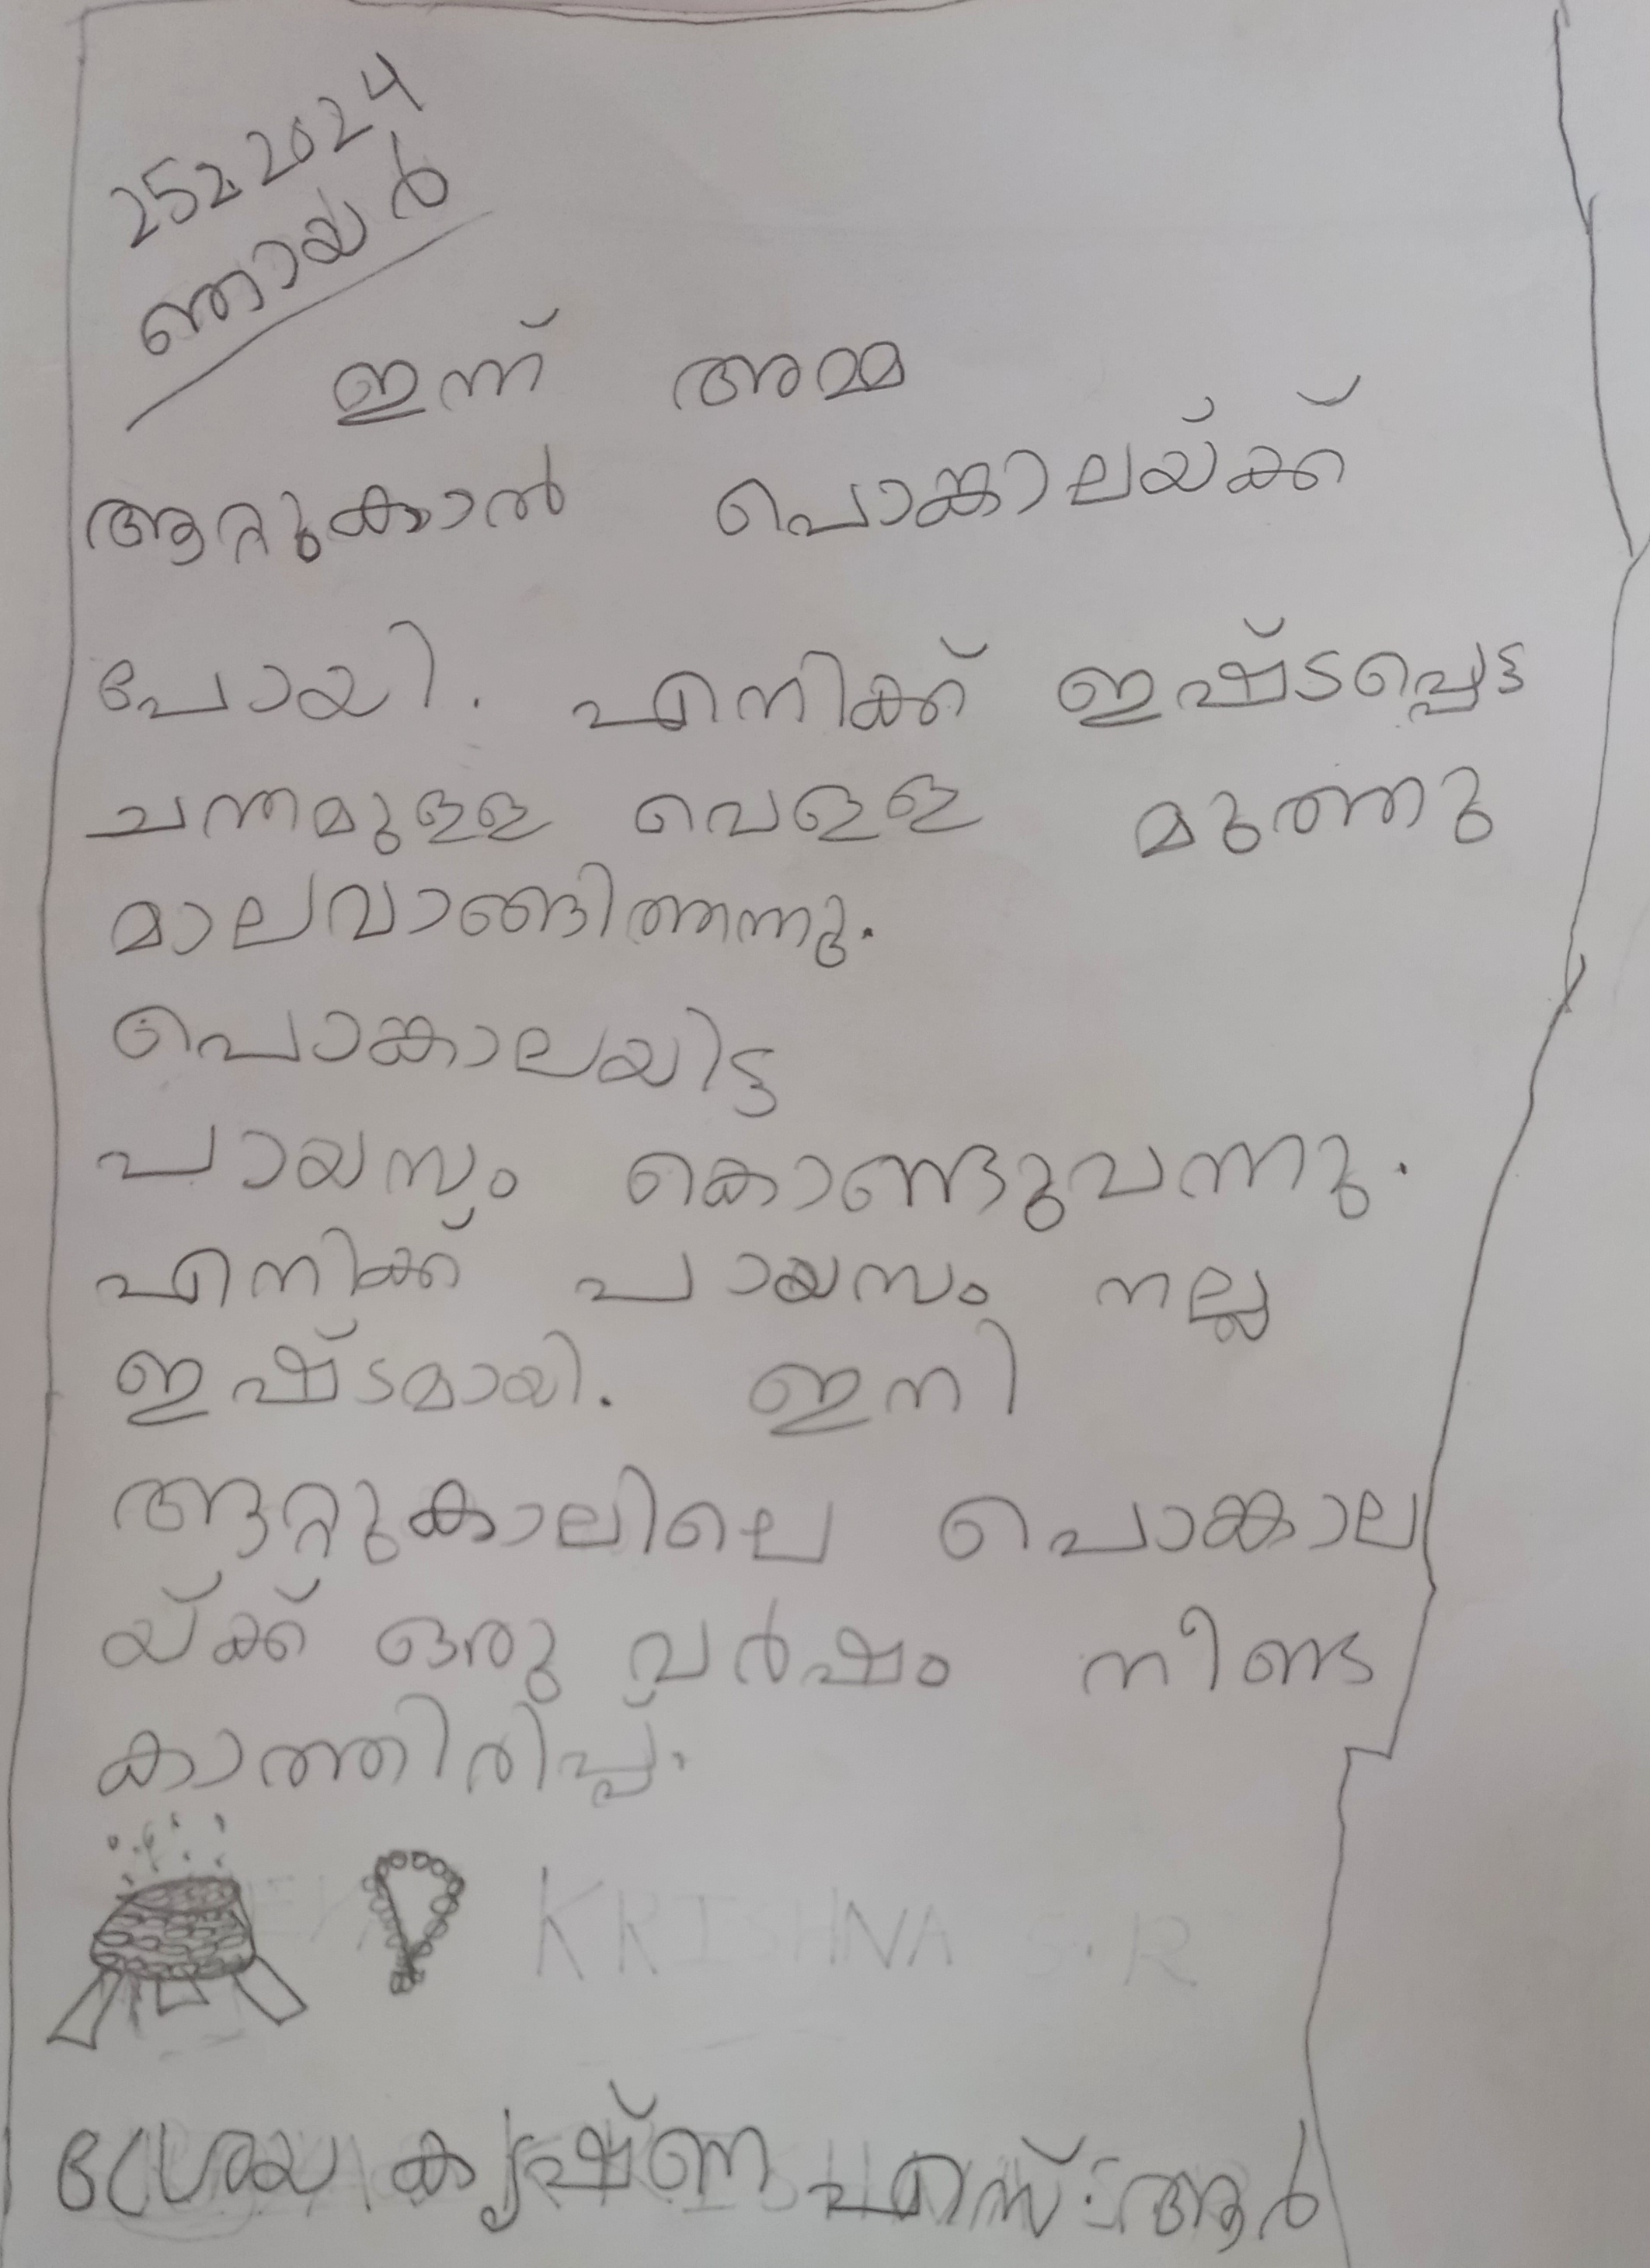 25 2 2024
ഞായർ
ഇന്ന് അമ്മ
ആറ്റുകാൽ പൊങ്കാലയ്ക്ക്
പോയി. എനിക്ക് ഇഷ്ടപ്പെട്ട
ചന്തമുള്ള വെള്ള മുത്തു
മാലവാങ്ങിത്തന്നു.
പൊങ്കാലയിട്ട
പായസം കൊണ്ടുവന്നു.
എനിക്ക് പായസം നല്ല
ഇഷ്ടമായി. ഇനി
ആറ്റുകാലിലെ പൊങ്കാല
യ്ക്ക് ഒരു വർഷം നീണ്ട
കാത്തിരിപ്പ്.
KRISHNA S.R
ശ്രേയ കൃഷ്ണ എസ്.ആർ